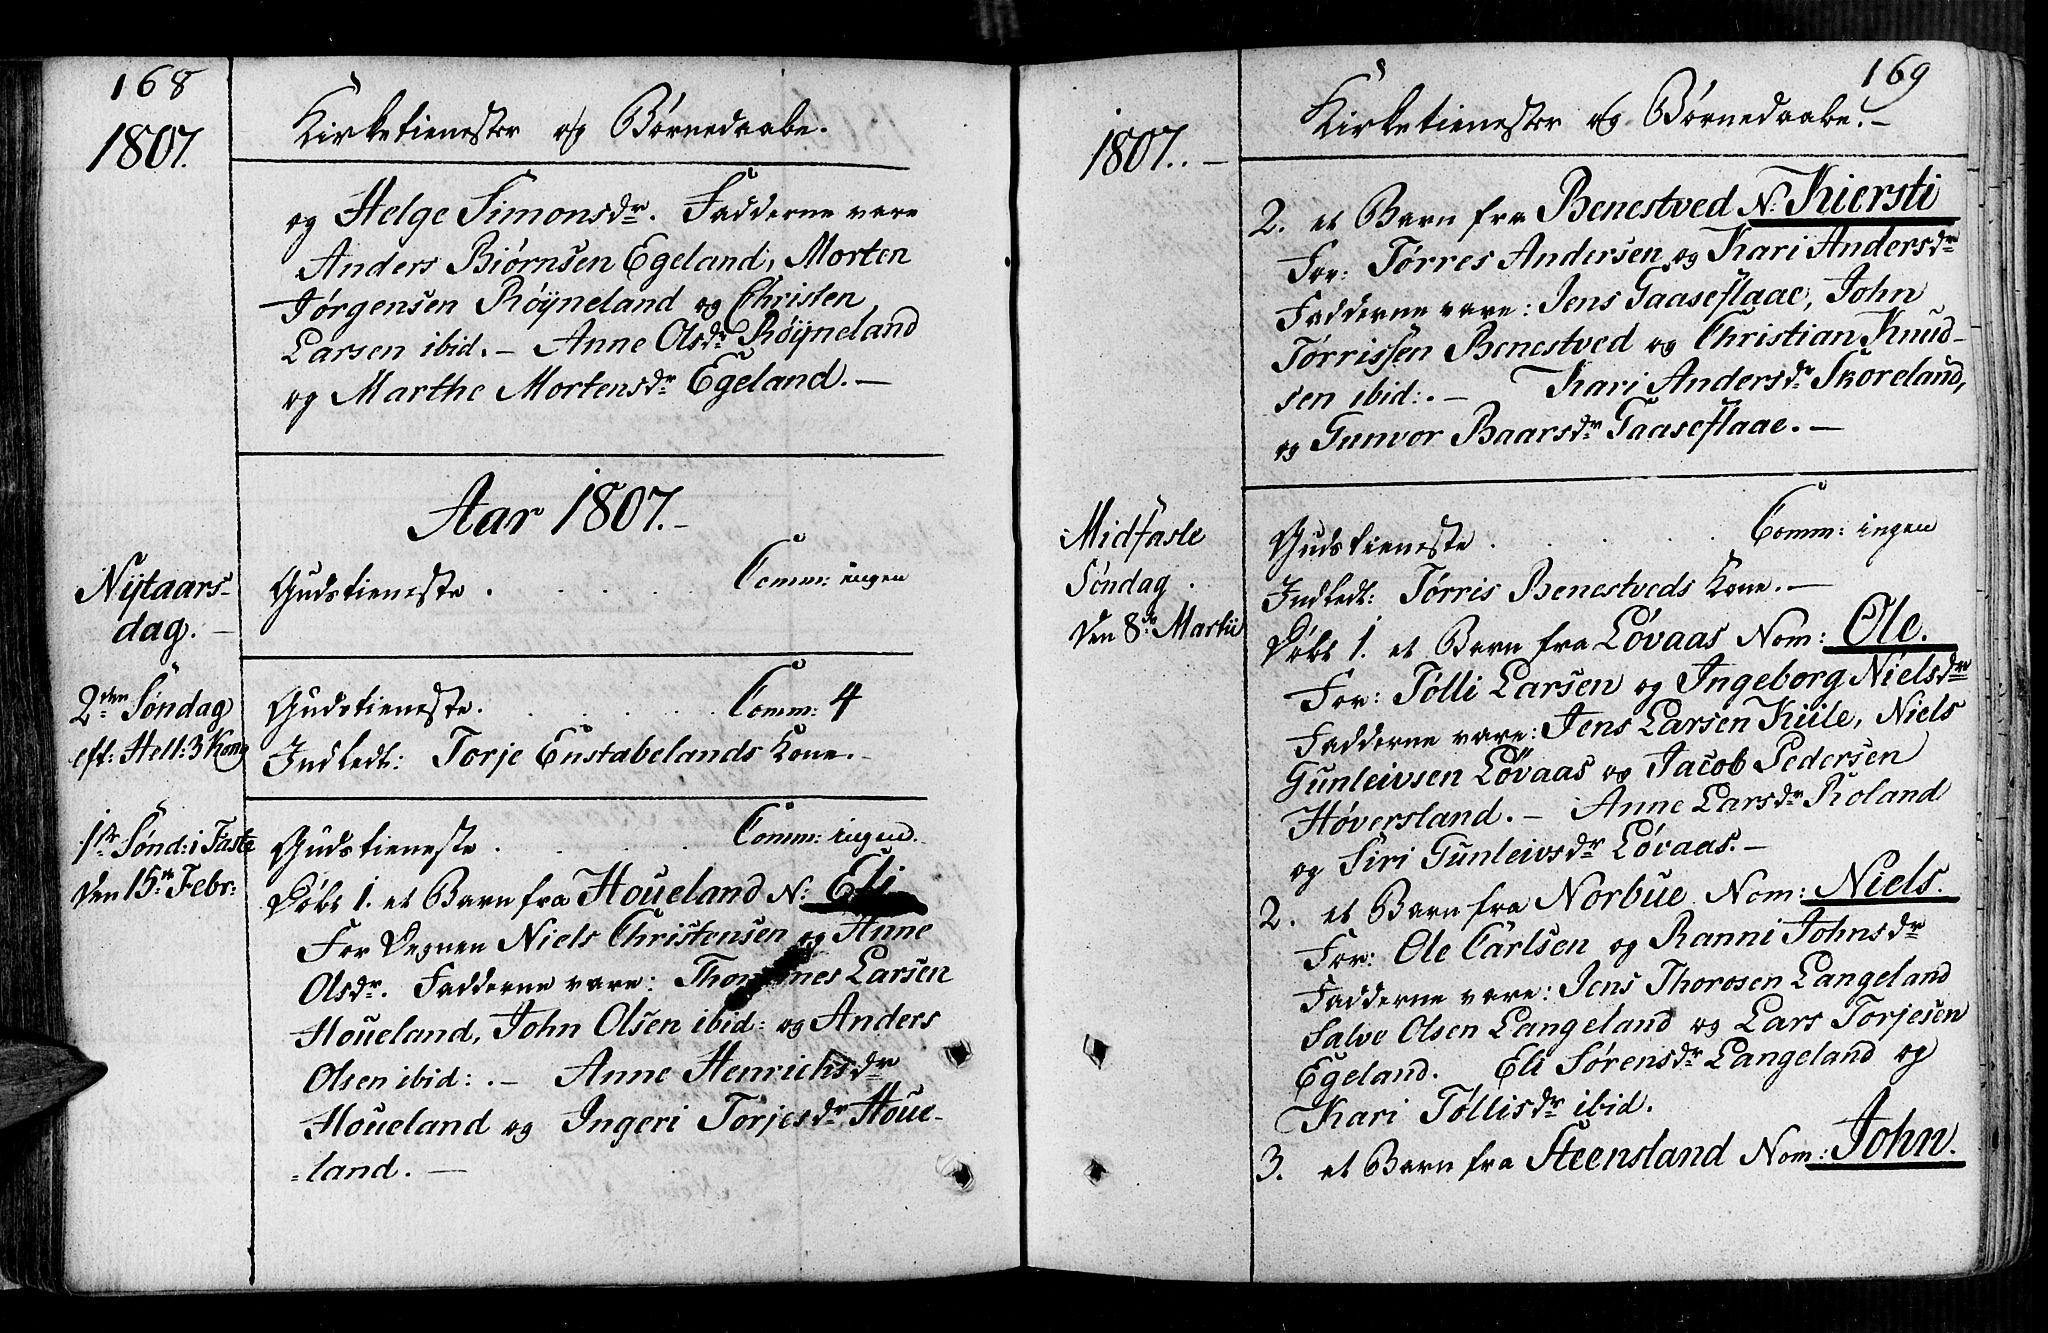 168
1807.
Kirketienester og Børnedaabe.
og Helge Simonsdr. Fadderne vare
Anders Biørnsen Egeland, Morten
Jørgensen Røÿneland og Christen
Larsen ibid. – Anne Olsdr Røÿneland
og Marthe Mortensdr Egeland. –
Aar 1807. –
Nÿtaars-
dag. –
Gudstieneste . . . . . Comm: ingen
2den Søndag
eft: Hell: 3 Kong
Gudstieneste. . . . . . Comm: 4
Indledt: Torje Eustabelands Kone. –
1ste Sønd: i Faste
den 15de Febr:
Gudstieneste . . . . . Comm: ingen.
Døbt 1. et Barn fra Houeland N: Eli
For Degnen Niels Christensen og Anne
Olsdr. Fadderne vare: Thommes Larsen
Houeland, John Olsen ibid: og Anders
Olsen ibid: . – Anne Henrichsdr
Houeland og Ingeri Torjesdr Houe-
=land. –
169
1807. . –
Kirketienester og Børnedaabe. –
2. et Barn fra Benestved N: Kiersti
For: Tørres Andersen og Kari Andersdr
Fadderne vare: Jens Gaaseflaae, John
Tørrissen Benestved og Christian Knud-
sen ibid: . – Kari Andersdr Skoreland,
og Gunvor Baarsdr Gaaseflaae. –
Midfaste
Søndag .
den 8de Martii
Gudstieneste . . . . . Comm: ingen
Indledt: Tørris Benestveds Kone. –
Døbt 1. et Barn fra Løvaas Nom: Ole.
For: Tølli Larsen og Ingeborg Nielsdr
Fadderne vare: Jens Larsen Kiile, Niels
Gunleivsen Løvaas og Jacob Pedersen
Høversland. – Anne Larsdr Roland
og Siri Gunleivsdr Løvaas. –
2. et Barn fra Norbue Nom: Niels.
For: Ole Carlsen og Ranni Johnsdr
Fadderne vare: Jens Thorosen Langeland
Salve Olsen Langeland og Lars Torjesen
Egeland. Eli Sørensdr Langeland og
Kari Tøllisdr ibid.
3. et Barn fra Steensland Nom: John.